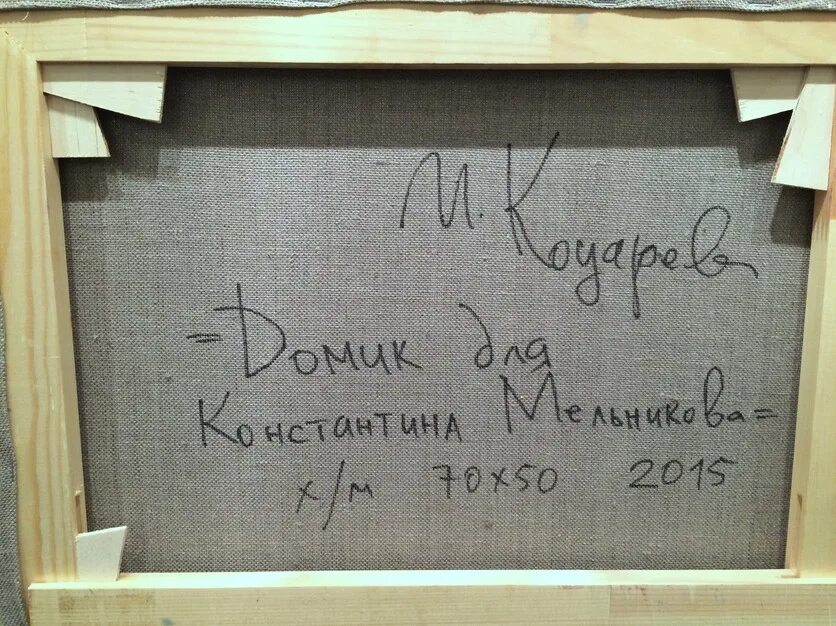 М. Коцарев
=Домик для
Константина Мельникова=
х/м 70х50 2015